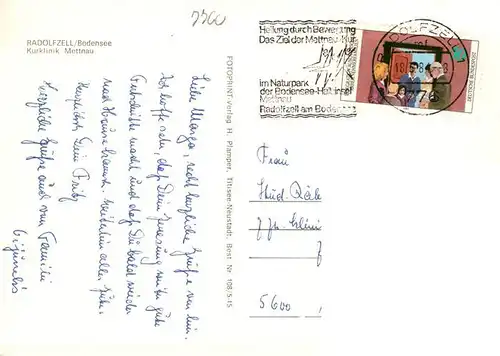 7760
RADOLFZELL/Bodensee
Kurklinik Mettnau
Heilung durch Bewegung
Das Ziel der Mettnau-Kur
im Naturpark
der Bodensee-Halbinsel
Mettnau
Radolfzell am Bodensee
RADOLFZELL
FOTOPRINT-Verlag H. Plamper, Titisee-Neustadt, Best Nr 108/5-15
Liebe Marga, recht herzliche Grüße von hier.
Ich hoffe sehr, daß Deine Genesung weiter gute
Fortschritte macht und daß Du bald wieder
nach Hause kannst. Weiterhin alles Gute.
Herzlichst Dein Fritz
Herzliche Grüße auch von Familie
Frau
5600